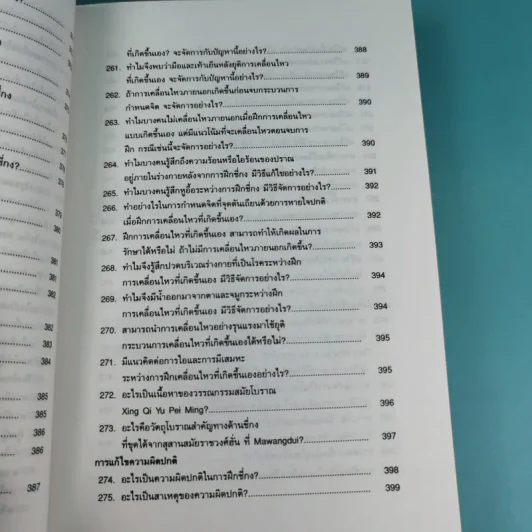 ที่เกิดขึ้นเอง? จะจัดการกับปัญหานี้อย่างไร? 388
261. ทำไมจึงพบว่ามือและเท้าเย็นหลังยุติการเคลื่อนไหว
ที่เกิดขึ้นเอง จะจัดการกับปัญหานี้อย่างไร? 389
262. ถ้าการเคลื่อนไหวภายนอกเกิดขึ้นก่อนจบกระบวนการ
กำหนดจิต จะจัดการอย่างไร? 390
263. ทำไมบางคนไม่เคลื่อนไหวภายนอกเมื่อฝึกการเคลื่อนไหว
แบบเกิดขึ้นเอง แต่มีแนวโน้มที่จะเคลื่อนไหวตอนจบการ
ฝึก กรณีเช่นนี้จะจัดการอย่างไร? 390
264. ทำไมบางคนรู้สึกถึงความร้อนหรือไอร้อนของปราณ
อยู่ภายในร่างกายหลังจากการฝึกชี่กง มีวิธีแก้ไขอย่างไร? 391
265. ทำไมบางคนรู้สึกหูอื้อระหว่างการฝึกชี่กง มีวิธีจัดการอย่างไร? 392
266. ทำอย่างไรในการกำหนดจิตที่จุดตันเถียนด้วยการหายใจปกติ
เมื่อฝึกการเคลื่อนไหวที่เกิดขึ้นเอง? 392
267. ฝึกการเคลื่อนไหวที่เกิดขึ้นเอง สามารถทำให้เกิดผลในการ
รักษาได้หรือไม่ ถ้าไม่มีการเคลื่อนไหวภายนอกเกิดขึ้น? 393
268. ทำไมจึงรู้สึกปวดบริเวณร่างกายที่เป็นโรคระหว่างฝึก
การเคลื่อนไหวที่เกิดขึ้นเอง มีวิธีจัดการอย่างไร? 394
269. ทำไมจึงมีน้ำออกมาจากตาและจมูกระหว่างฝึก
การเคลื่อนไหวที่เกิดขึ้นเอง มีวิธีจัดการอย่างไร? 394
270. สามารถนำการเคลื่อนไหวอย่างรุนแรงมาใช้ยุติ
กระบวนการเคลื่อนไหวที่เกิดขึ้นเองได้หรือไม่? 395
271. มีแนวคิดต่อการไอและการมีเสมหะ
ระหว่างการฝึกเคลื่อนไหวที่เกิดขึ้นเองอย่างไร? 395
272. อะไรเป็นเนื้อหาของวรรณกรรมสมัยโบราณ
Xing Qi Yu Pei Ming? 396
273. อะไรคือวัตถุโบราณสำคัญทางด้านชี่กง
ที่ขุดได้จากสุสานสมัยราชวงศ์ฮั่น ที่ Mawangdui? 397
การแก้ไขความผิดปกติ
274. อะไรเป็นความผิดปกติในการฝึกชี่กง? 398
275. อะไรเป็นสาเหตุของความผิดปกติ? 399